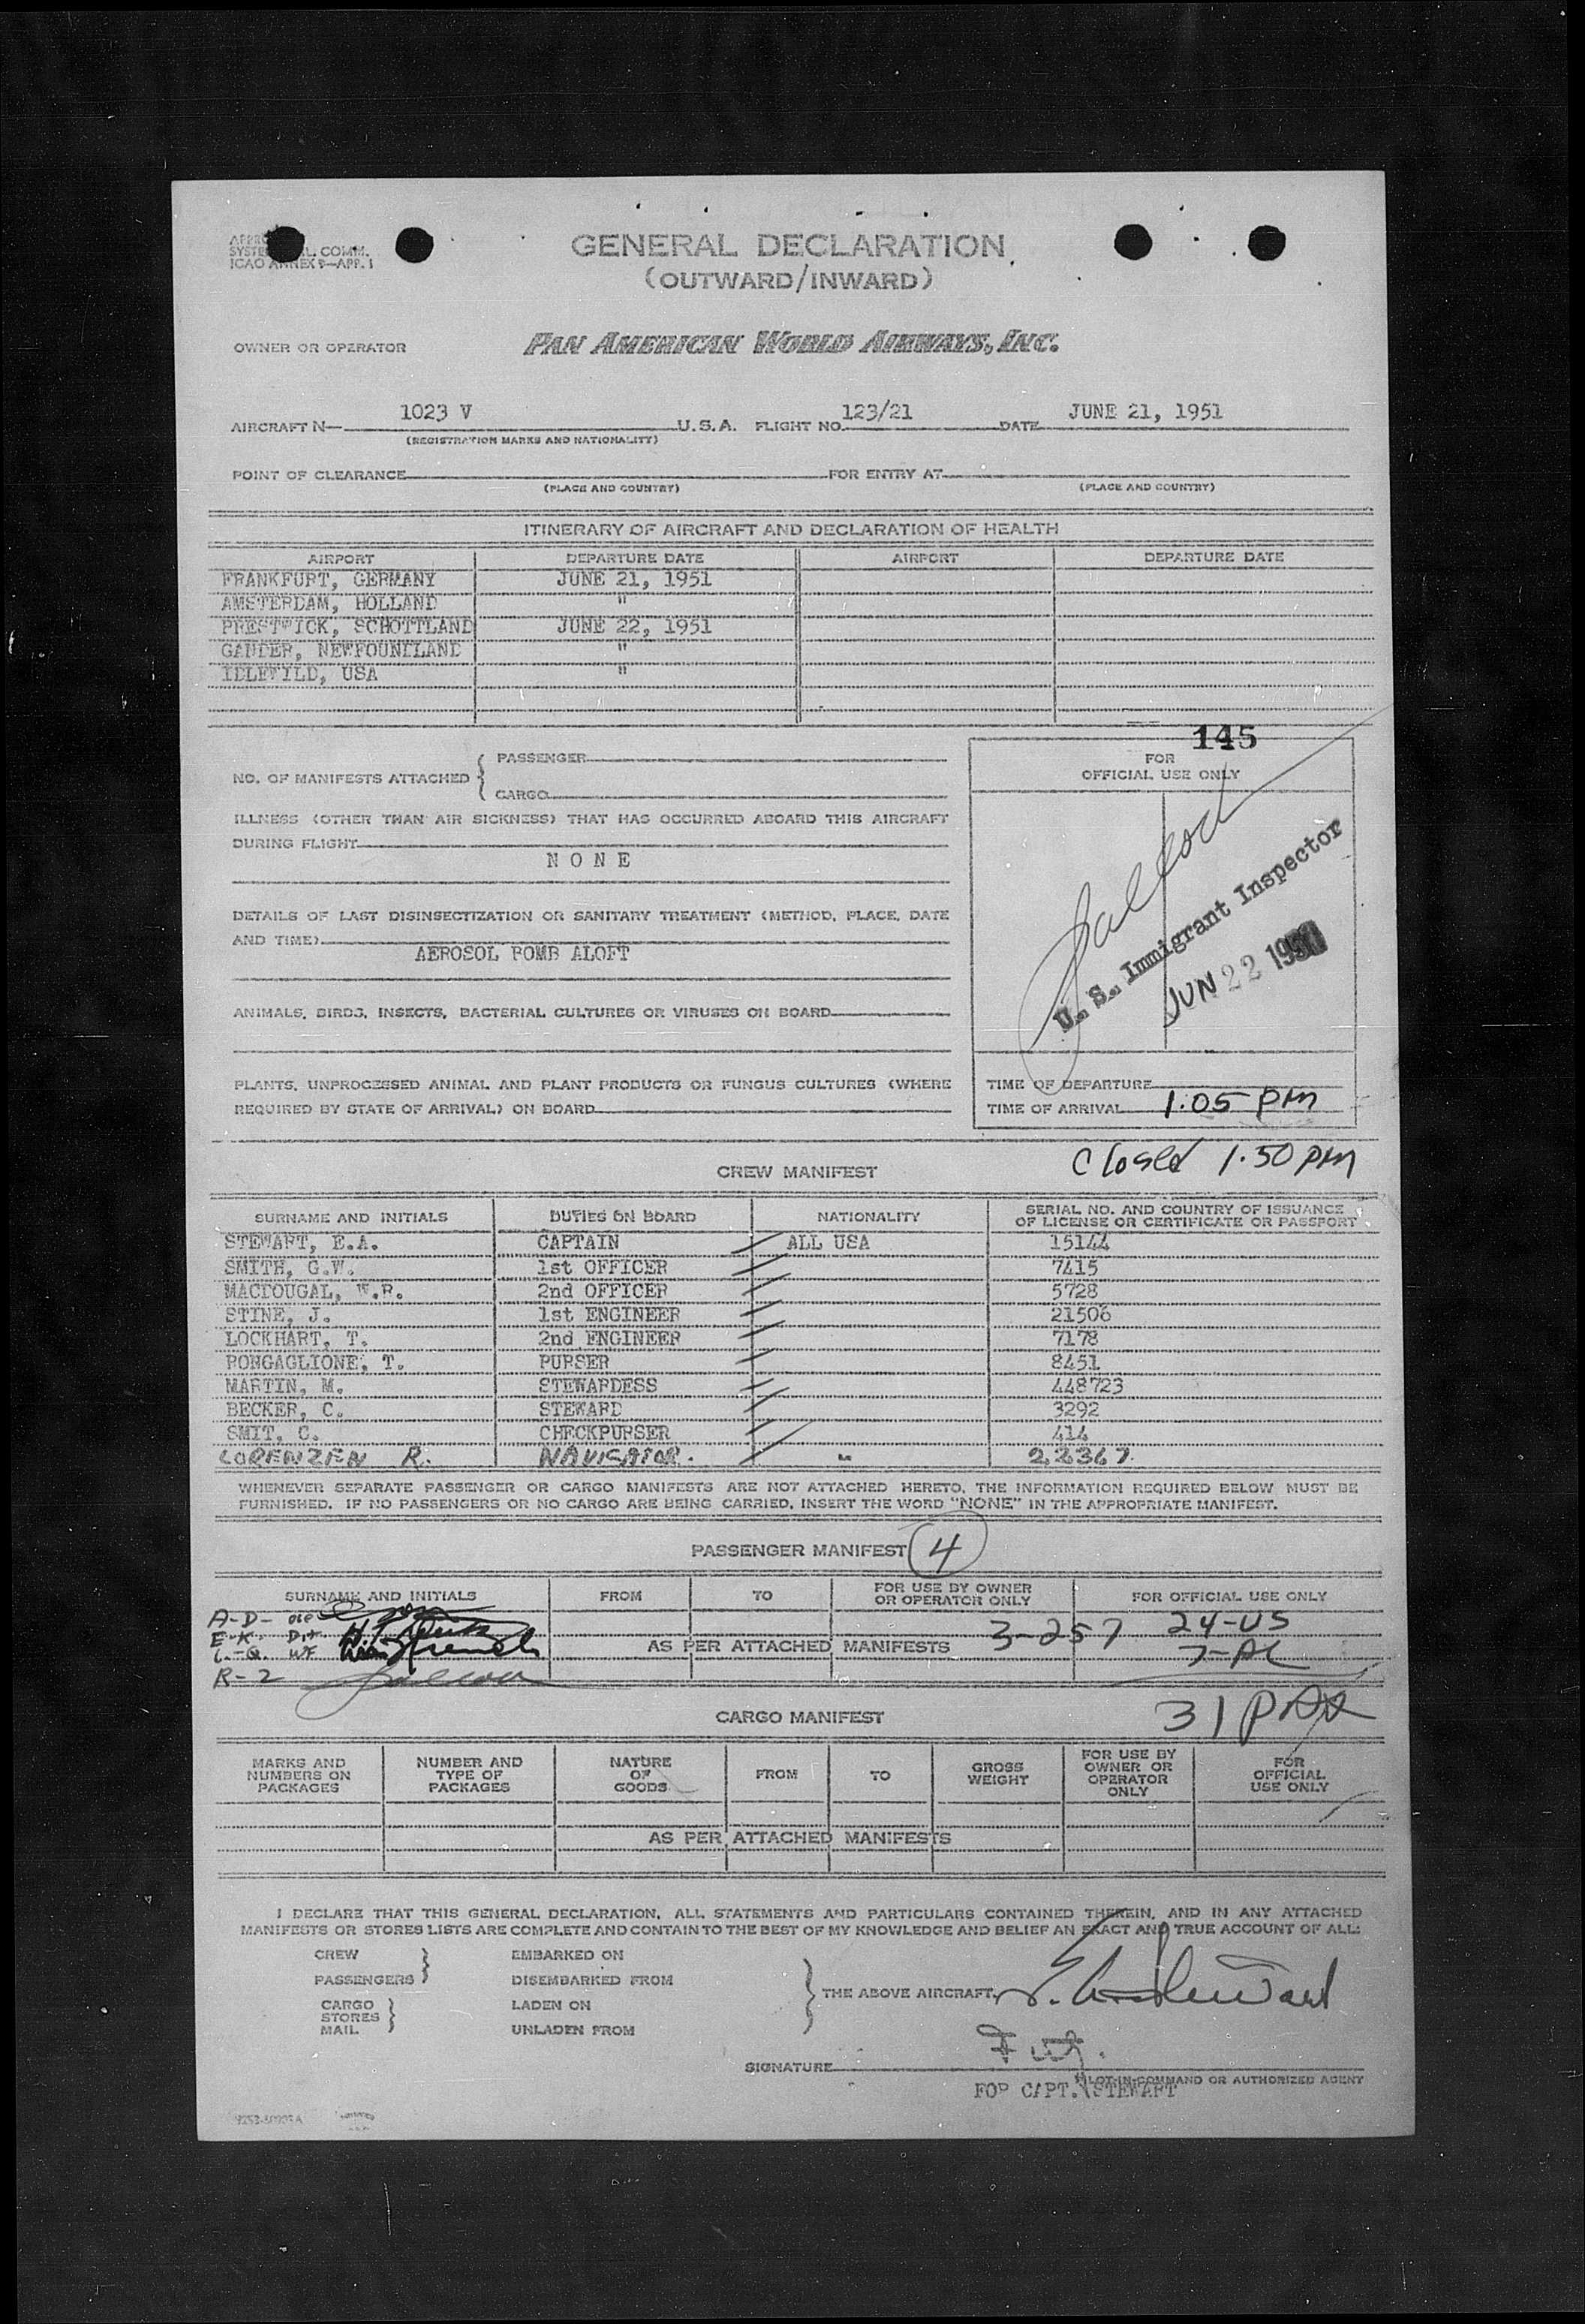 GENERAL DECLARATION
(OUTWARD/INWARD)
L. COMM.
ICAO ANNEX 9—APP. 1
OWNER OR OPERATOR PAN AMERICAN WORLD AIRWAYS, INC.
AIRCRAFT N— 1023 V U.S.A. FLIGHT NO. 123/21 DATE JUNE 21, 1951
(REGISTRATION MARKS AND NATIONALITY)
POINT OF CLEARANCE FOR ENTRY AT
(PLACE AND COUNTRY) (PLACE AND COUNTRY)
ITINERARY OF AIRCRAFT AND DECLARATION OF HEALTH
AIRPORT DEPARTURE DATE AIRPORT DEPARTURE DATE
FRANKFURT, GERMANY JUNE 21, 1951
AMSTERDAM, HOLLAND "
PRESTWICK, SCHOTTLAND JUNE 22, 1951
GANDER, NEWFOUNDLAND "
IDLEWILD, USA "
145
FOR
OFFICIAL USE ONLY
NO. OF MANIFESTS ATTACHED { PASSENGER
CARGO
ILLNESS (OTHER THAN AIR SICKNESS) THAT HAS OCCURRED ABOARD THIS AIRCRAFT
DURING FLIGHT
N O N E
DETAILS OF LAST DISINSECTIZATION OR SANITARY TREATMENT (METHOD, PLACE, DATE
AND TIME)
AEROSOL BOMB ALOFT
U. S. Immigrant Inspector
JUN 22 1951
ANIMALS, BIRDS, INSECTS, BACTERIAL CULTURES OR VIRUSES ON BOARD
PLANTS, UNPROCESSED ANIMAL AND PLANT PRODUCTS OR FUNGUS CULTURES (WHERE
REQUIRED BY STATE OF ARRIVAL) ON BOARD
TIME OF DEPARTURE
TIME OF ARRIVAL 1.05 PM
Closed 1.50 PM
CREW MANIFEST
SURNAME AND INITIALS DUTIES ON BOARD NATIONALITY SERIAL NO. AND COUNTRY OF ISSUANCE OF LICENSE OR CERTIFICATE OR PASSPORT
STEWART, E.A. CAPTAIN ALL USA 15144
SMITH, G.W. 1st OFFICER 7415
MACDOUGAL, W.R. 2nd OFFICER 5728
STINE, J. 1st ENGINEER 21506
LOCKHART, T. 2nd ENGINEER 7178
RONGAGLIONE, T. PURSER 8451
MARTIN, M. STEWARDESS 448723
BECKER, C. STEWARD 3292
SMIT, C. CHECKPURSER 414
LORENZEN R. NAVIGATOR. " 22367
WHENEVER SEPARATE PASSENGER OR CARGO MANIFESTS ARE NOT ATTACHED HERETO, THE INFORMATION REQUIRED BELOW MUST BE
FURNISHED. IF NO PASSENGERS OR NO CARGO ARE BEING CARRIED, INSERT THE WORD "NONE" IN THE APPROPRIATE MANIFEST.
PASSENGER MANIFEST 4
SURNAME AND INITIALS FROM TO FOR USE BY OWNER OR OPERATOR ONLY FOR OFFICIAL USE ONLY
A-D-
E-K-
L-Q.
R-Z
AS PER ATTACHED MANIFESTS 3-257 24-US
7-AL
31 PAX
CARGO MANIFEST
MARKS AND NUMBERS ON PACKAGES NUMBER AND TYPE OF PACKAGES NATURE OF GOODS FROM TO GROSS WEIGHT FOR USE BY OWNER OR OPERATOR ONLY FOR OFFICIAL USE ONLY
AS PER ATTACHED MANIFESTS
I DECLARE THAT THIS GENERAL DECLARATION, ALL STATEMENTS AND PARTICULARS CONTAINED THEREIN, AND IN ANY ATTACHED
MANIFESTS OR STORES LISTS ARE COMPLETE AND CONTAIN TO THE BEST OF MY KNOWLEDGE AND BELIEF AN EXACT AND TRUE ACCOUNT OF ALL:
CREW EMBARKED ON
PASSENGERS DISEMBARKED FROM
THE ABOVE AIRCRAFT. E. A. Stewart
CARGO LADEN ON
STORES
MAIL UNLADEN FROM
SIGNATURE
PILOT-IN-COMMAND OR AUTHORIZED AGENT
FOR CAPT. STEWART